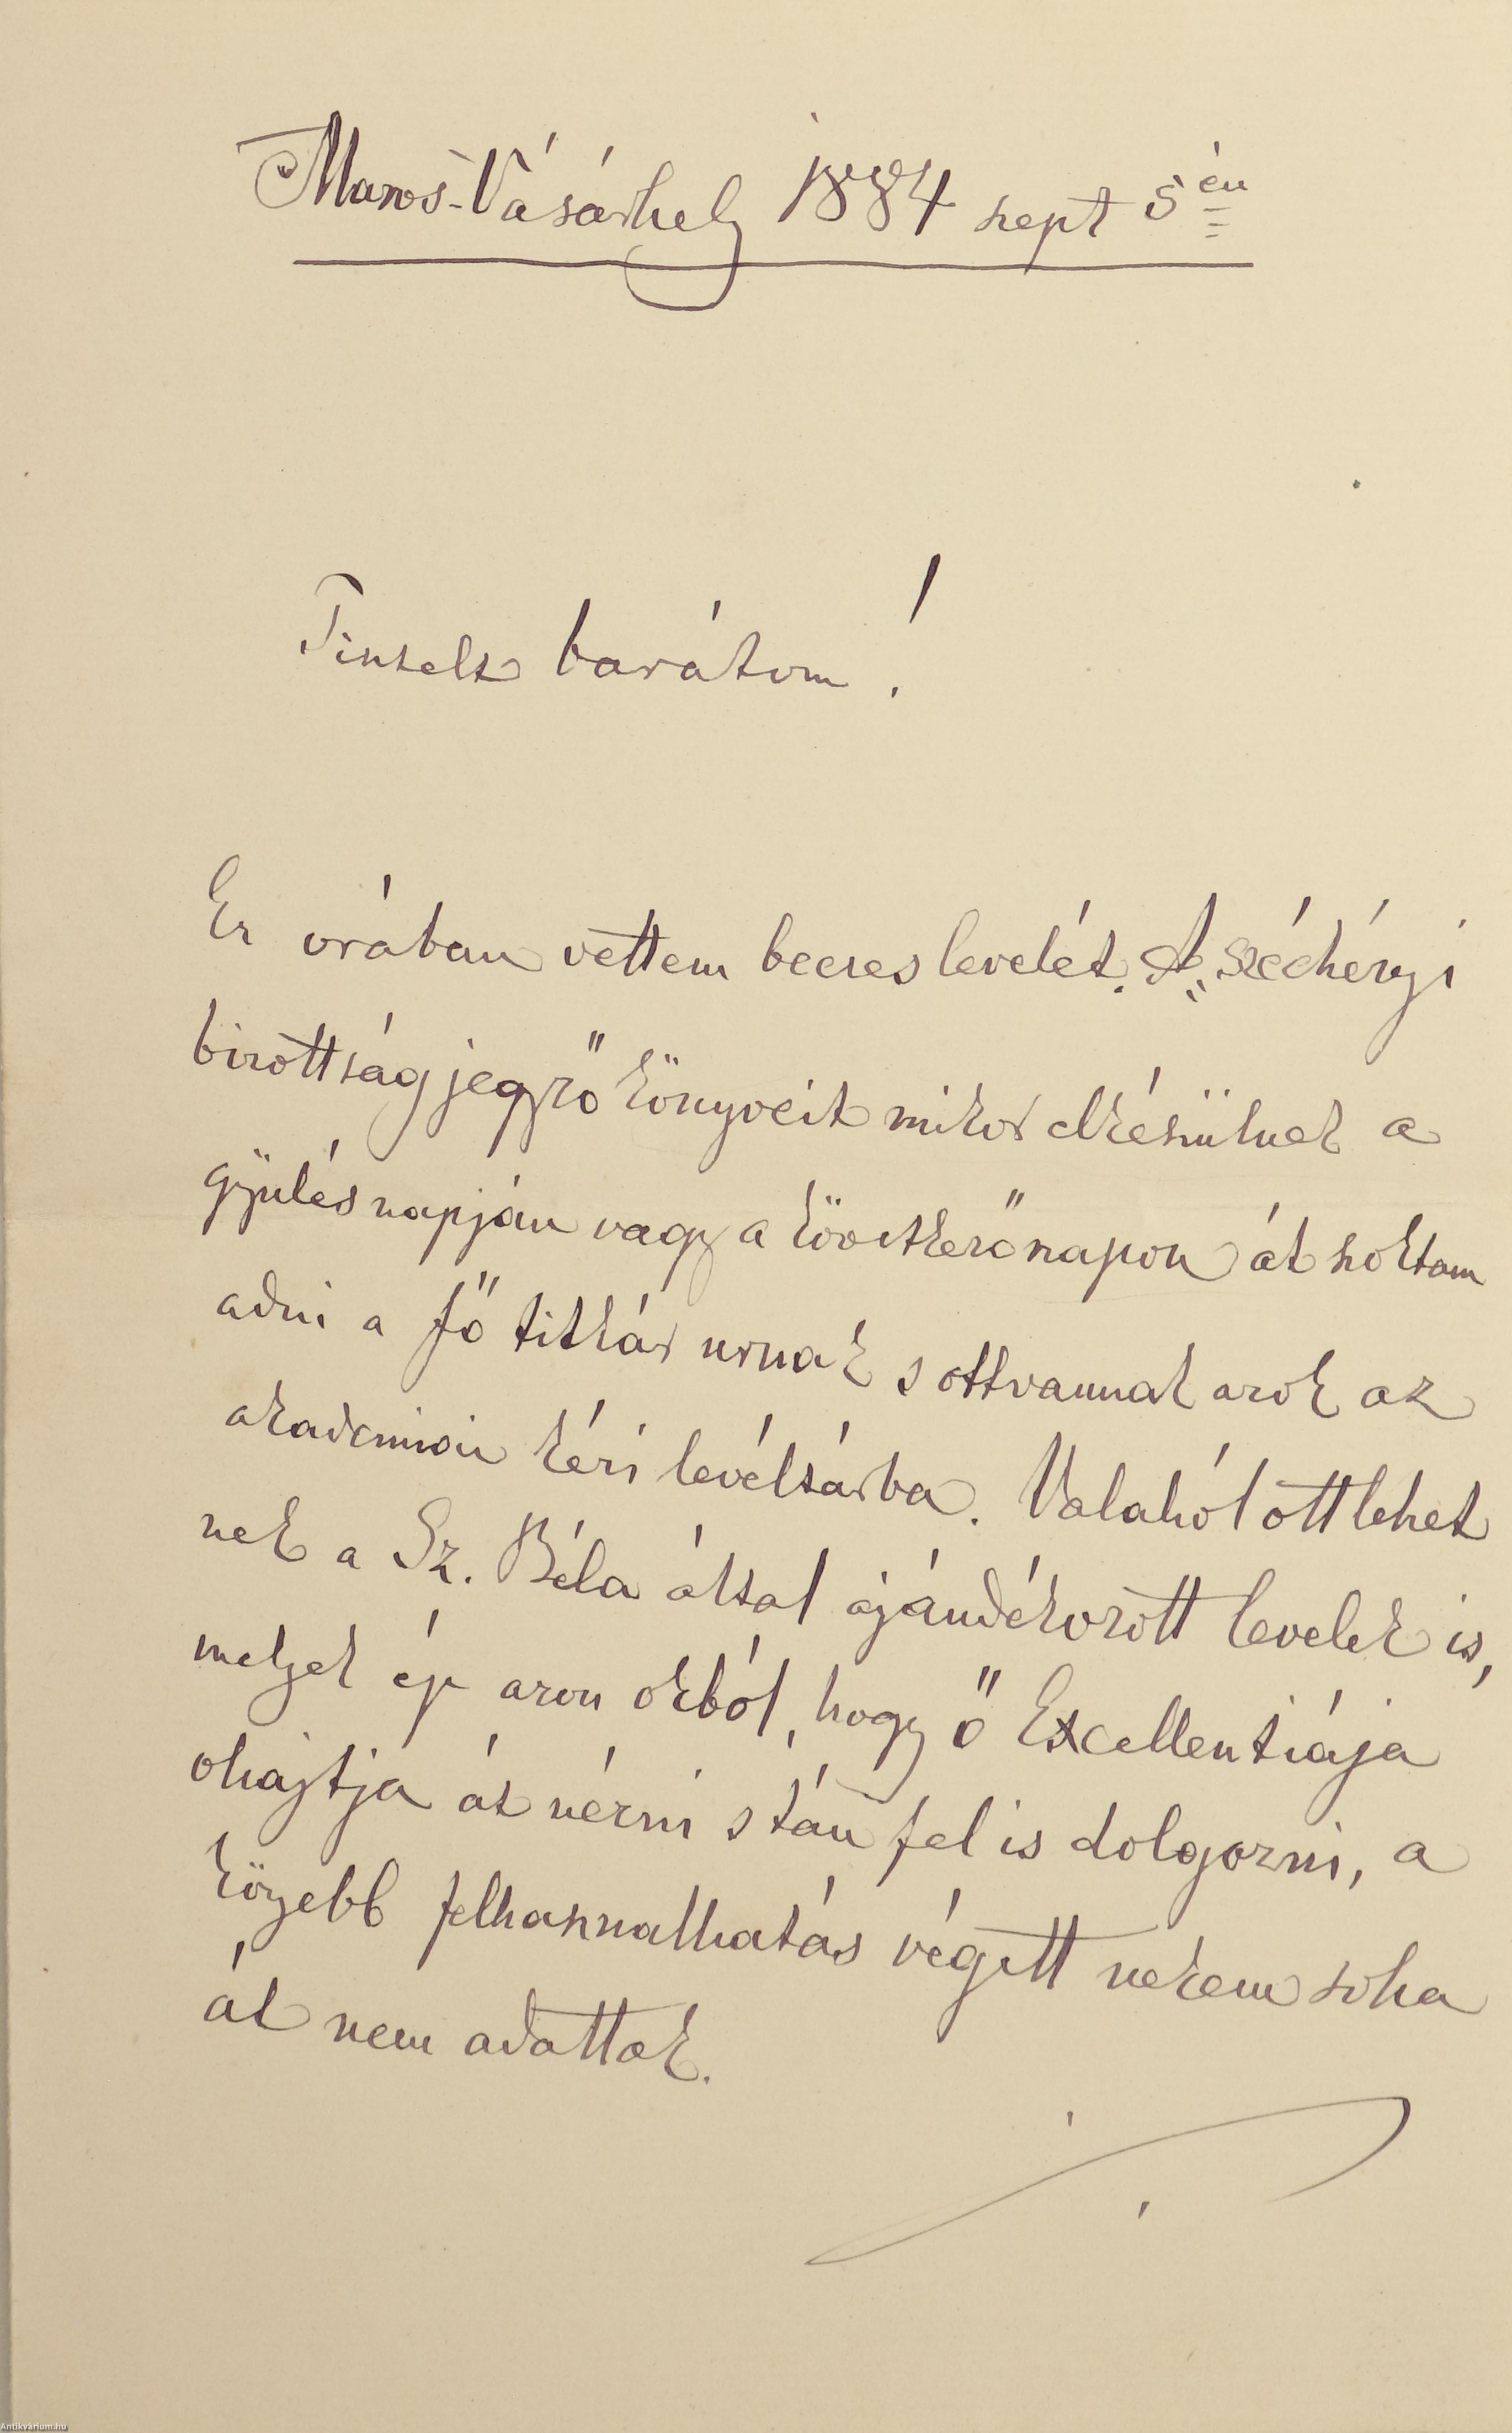 Maros-Vásárhely 1884 sept 5én
Tisztelt barátom!
Ez orában vettem becses levelét. A Széchényi
bizottság jegyző könyveit mikor elkészülnek a
gyülés napján vagy a következő napon át szoktam
adni a fő titkár urnak s ott vannak azok az
akademiai kézi levéltárba. Valahol ott lehet
nek a Sz. Béla által ajándékozott levelek is,
melyek ép azon okból, hogy ő Excellentiája
ohajtja át nézni s tán fel is dolgozni, a
közebb felhasnalhatás végett nekem soha
át nem adattak.
Antikvarium.hu